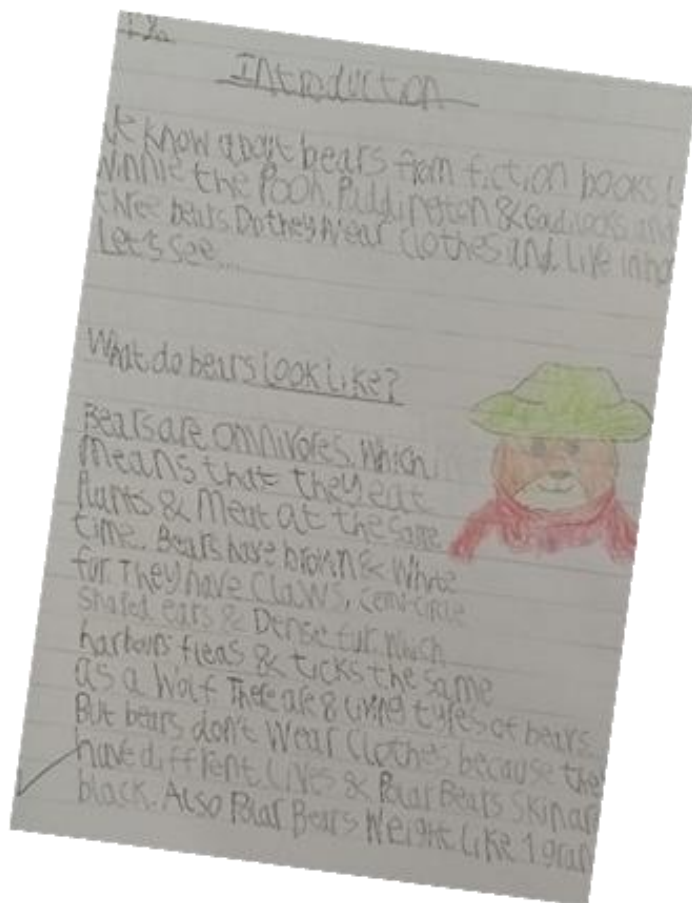 Introduction
We know about bears from fiction books
Winnie the Pooh, Paddington & Goldilocks and
three bears. Do they wear clothes and live in
Let's see....
What do bears look like?
Bears are omnivores. Which
means that they eat
Plants & Meat at the same
time. Bears have brown & White
fur. They have Claws, cemi-circle
shaped ears & Dense fur. Which
harbours fleas & ticks the same
as a Wolf There are 8 living types of bears.
But bears don't Wear Clothes because they
have diffrent Lives & Polar Bears Skin
black. Also Polar Bears Weight Like 1